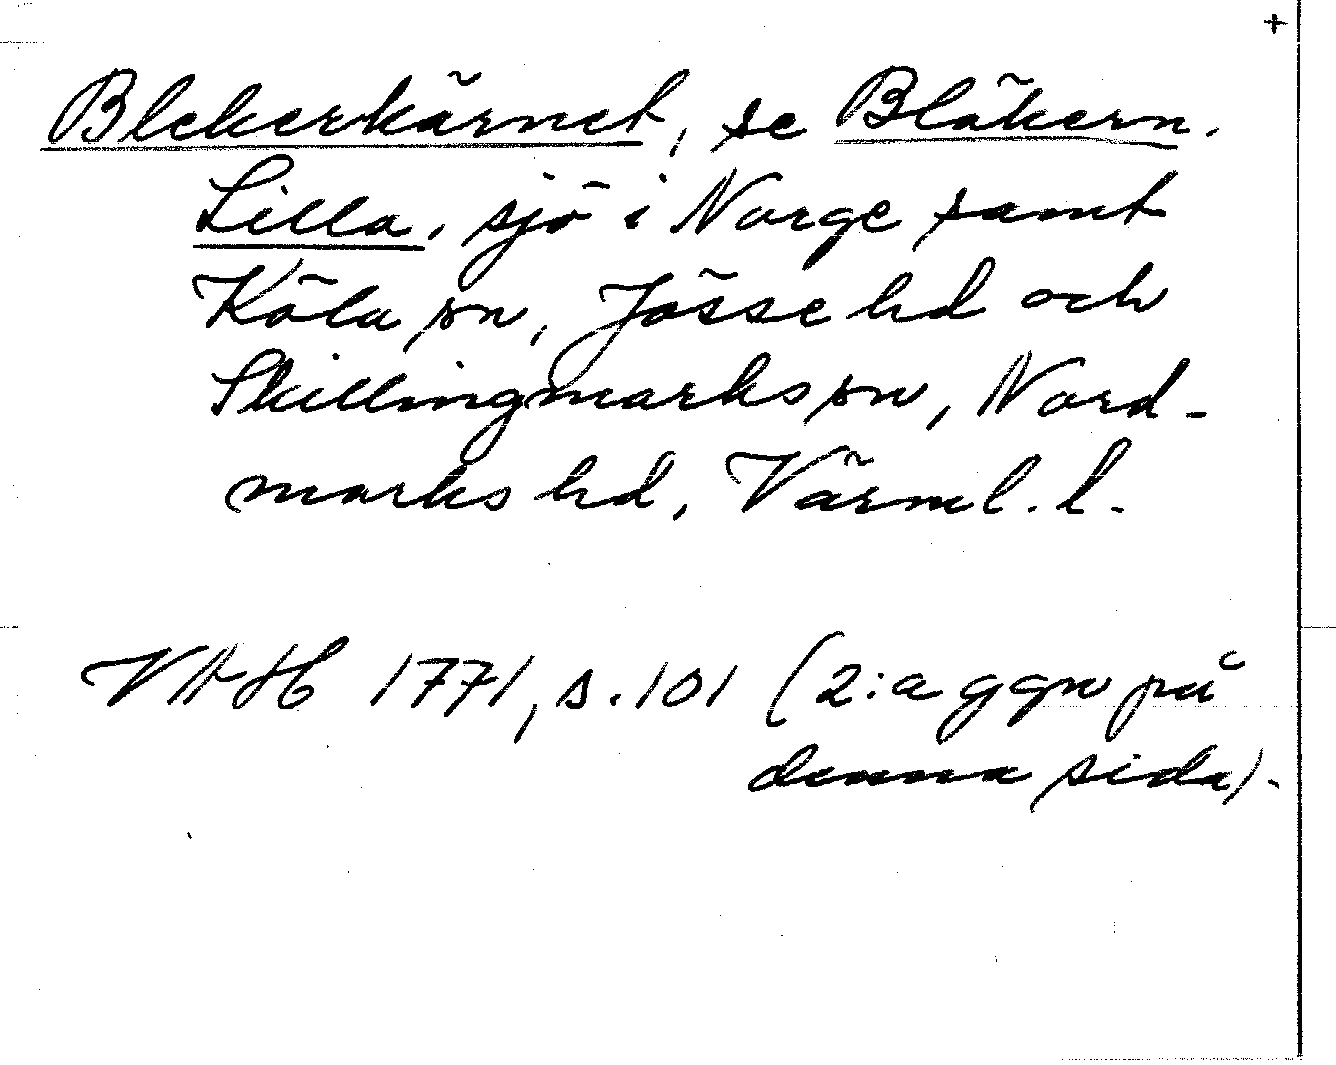 +
Blekerkärnet, se Bläkern,
Lilla, sjö i Norge samt
Köla sn, Jösse hd och
Skillingmarks sn, Nord-
marks hd, Värml. l.
VAH 1771, s. 101 (2:a ggn på
denna sida).